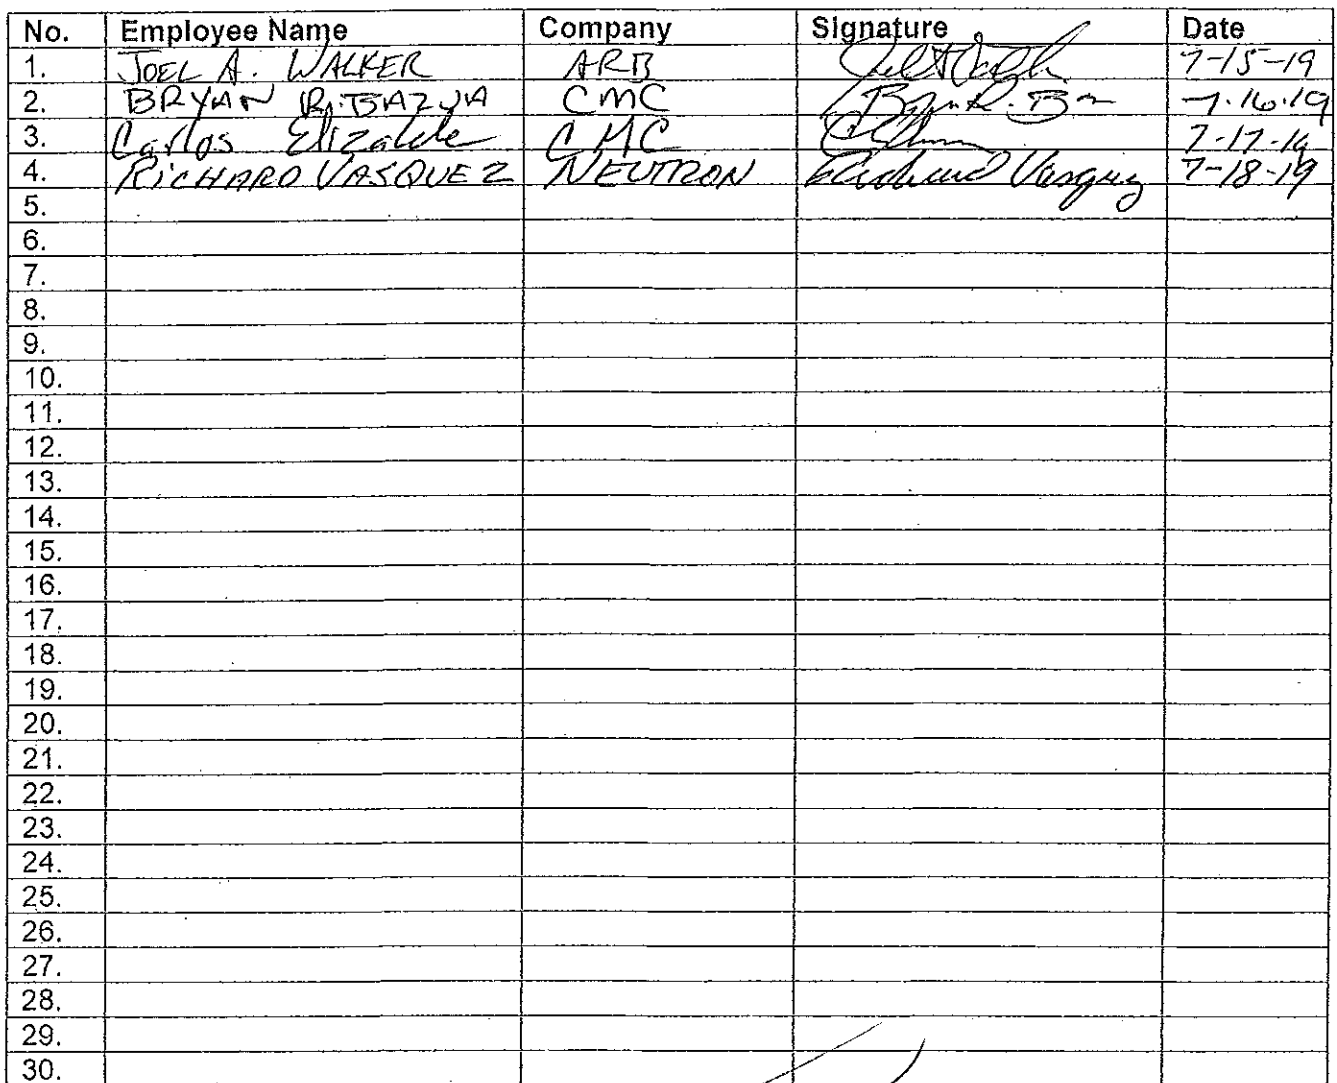 No. Employee Name Company Signature Date
1. JOEL A. WALKER ARB 7-15-19
2. BRYAN R. BAZUA CMC Bryan R. 7.16.19
3. Carlos Elizalde CMC 7-17-19
4. RICHARD VASQUEZ NEUTRON Richard Vasquez 7-18-19
5.
6.
7.
8.
9.
10.
11.
12.
13.
14.
15.
16.
17.
18.
19.
20.
21.
22.
23.
24.
25.
26.
27.
28.
29.
30.